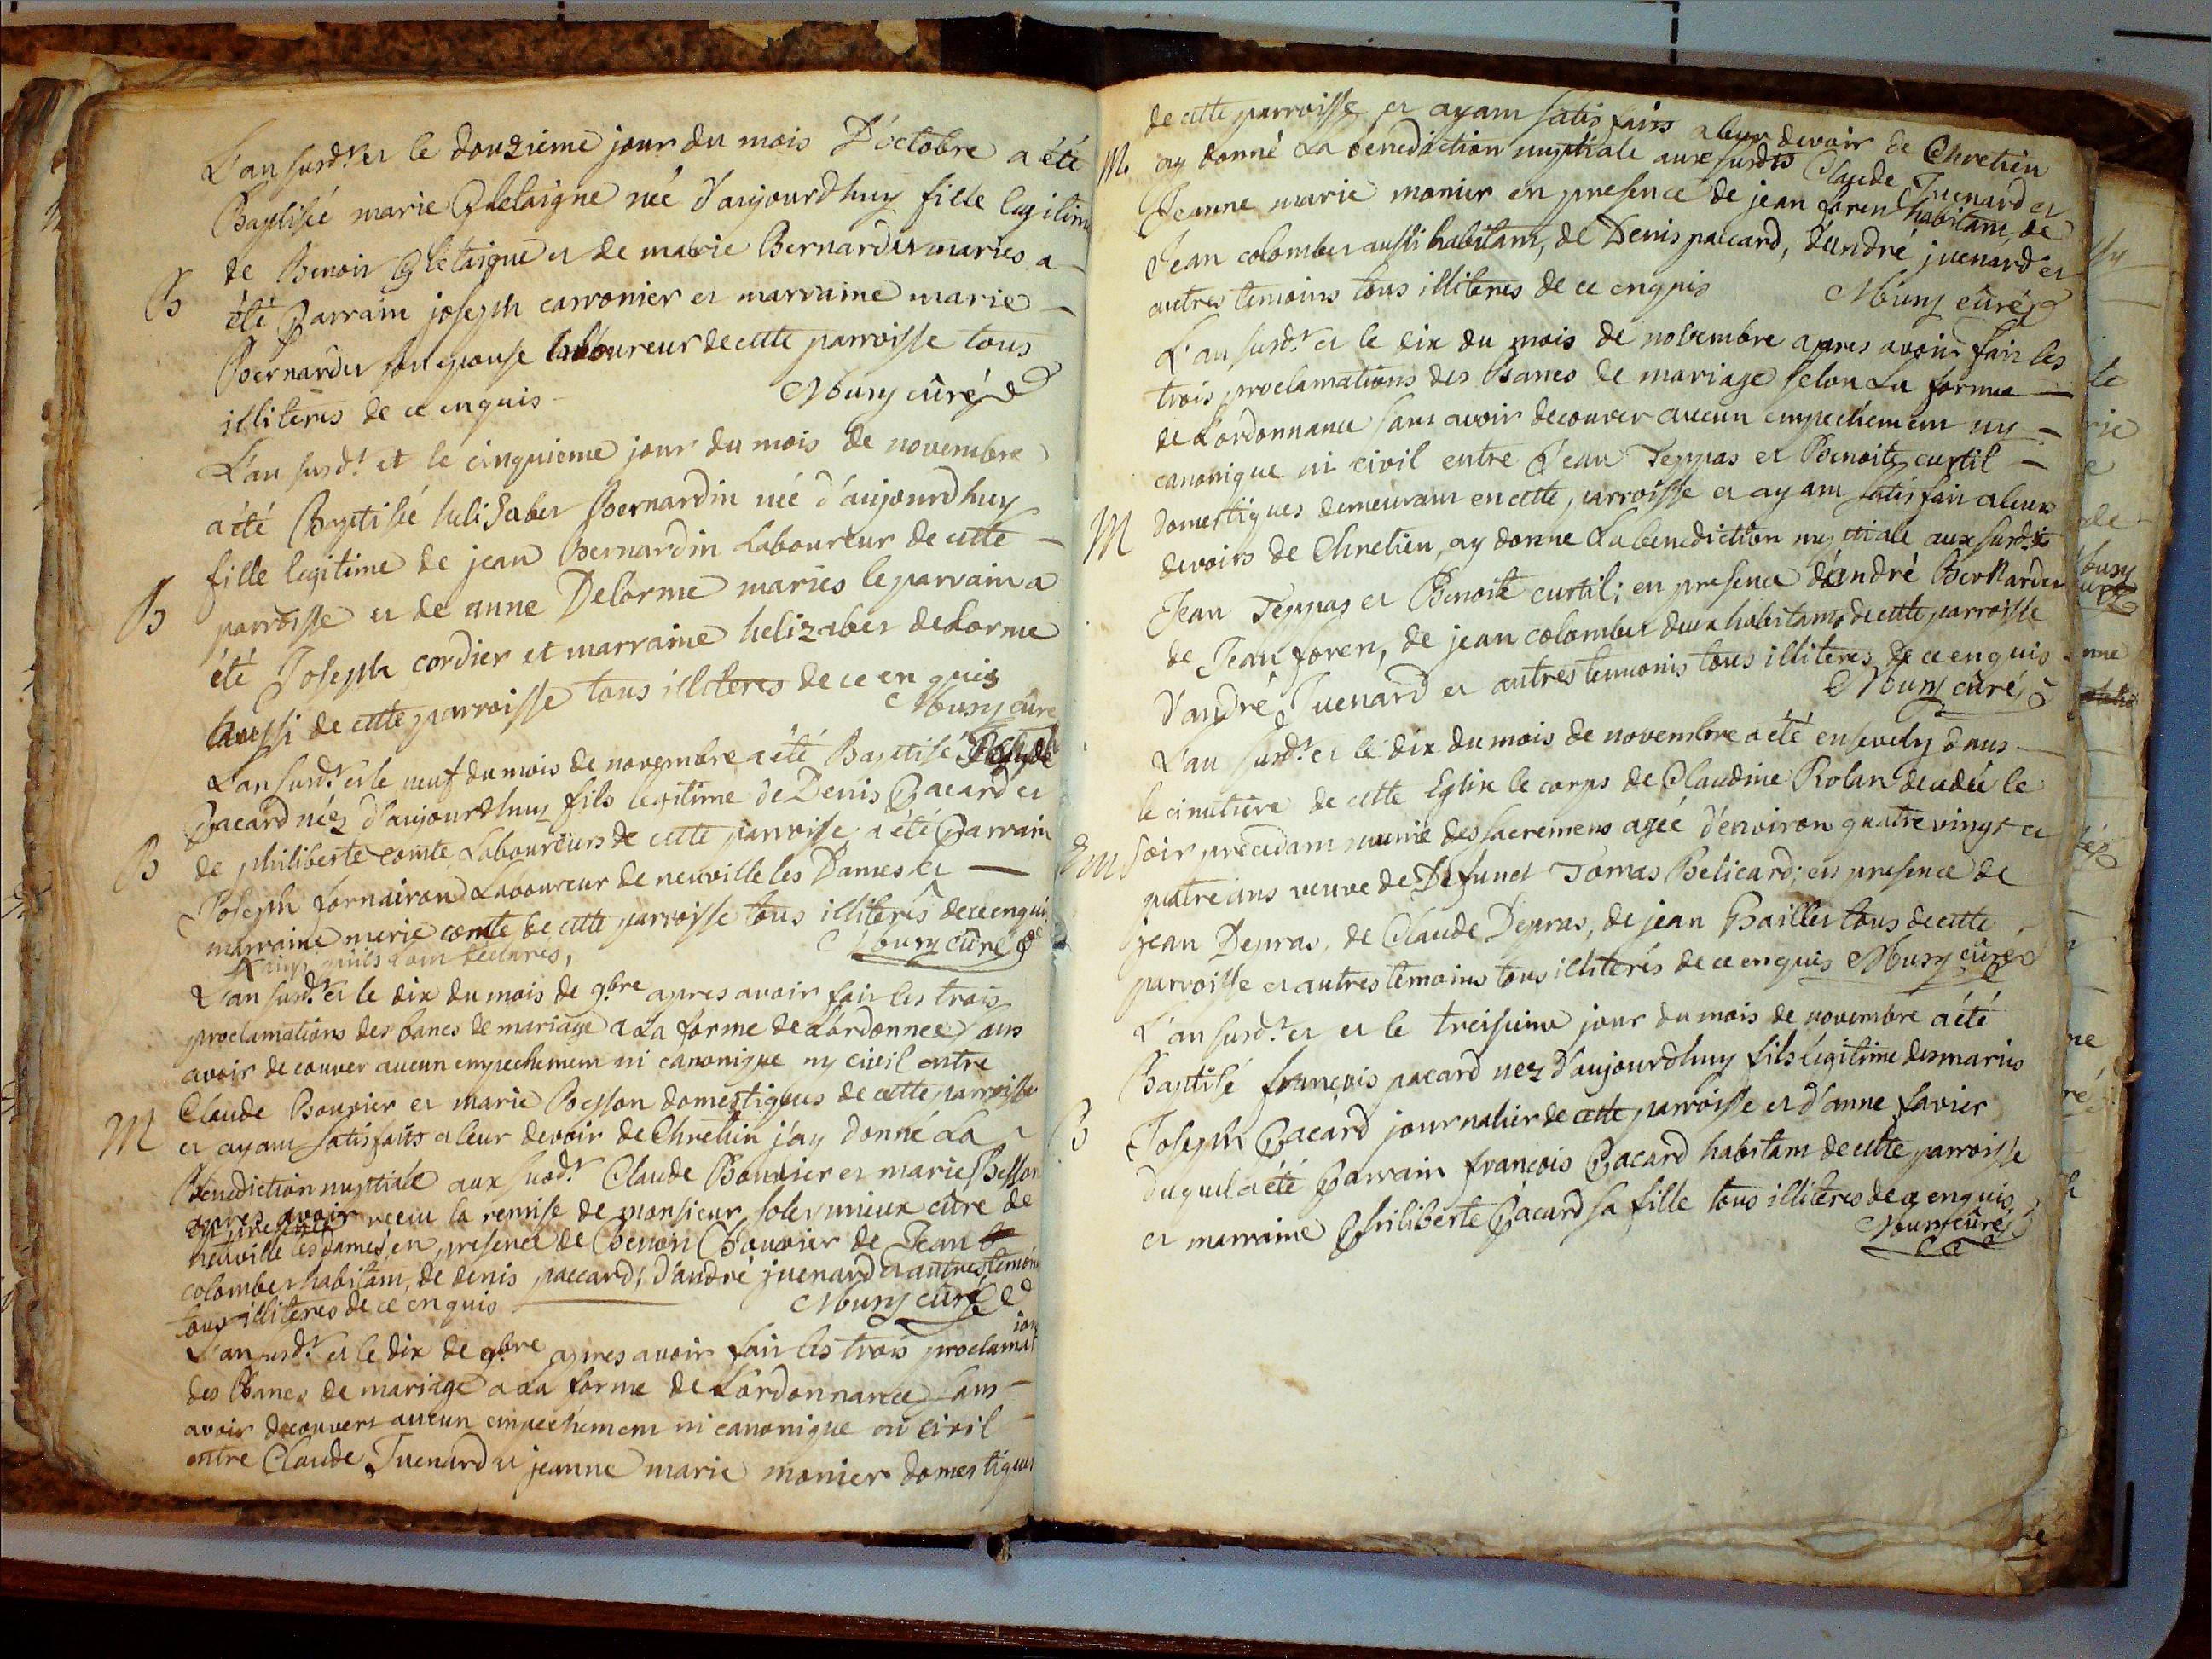 L'an susd.t et le douzieme jour du mois D'octobre a été
Baptisée marie Gletaigne née d'aujourdhuy fille legitime
de Benoit Gletaigne et de marie Bernardet maries a
B
été Parrain joseph carronier et marraine marie
Bernardet son epouse laboureur de cette parroisse tous
illiteres de ce enquis
Mury cûré
L'an susd.t et le cinquieme jour du mois de novembre
a été Baptisée helisabet Bernardin née d'aujourdhuy
fille legitime de jean Bernardin Laboureur de cette
B
parroisse et de anne Delorme maries le parrain a
été Joseph cordier et marraine helizabet delorme
aussi de cette parroisse tous illiteres de ce enquis
Mury cûre
L'an susd.t et le neuf du mois de novembre a été Baptisé Joseph
Pacard néez d'aujourdhuy fils legitime de Denis Pacard et
B
de philiberte comte Laboureurs de cette parroisse a été Parrain
Joseph fornairon Laboureur de neuville les Dames et
marraine marie comte de cette parroisse tous illiteres de ce enquis
Mury cûré
ainsi quils l'ont declarés,
L'an susd.t et le dix du mois de 9.bre apres avoir fait les trois
proclamations des bancs de mariage a La forme de L'ordonnee sans
avoir decouver aucun empechement ni canonique ny civil entre
Claude Bouvier et marie Besson domestiques de cette parroisse
M
et ayant satisfaits a leur devoir de Chretien j'ay donné La
Benediction nuptiale aux susd.t Claude Bouvier et marie Besson
apres avoir receu la remise de monsieur solermieux cûre de
neuville les dames en presence de Benoit Bouvier de Jean
colombet habitant, de denis paccard, d'andré juenard et autres temoins
tous illiteres de ce enquis
Mury cûré
L'an susd.t et le dix de 9.bre apres avoir fait les trois proclamations
des Bancs de mariage a La forme de L'ordonnance sans
avoir decouvert aucun empechement ni canonique ni civil
entre Claude Juenard et jeanne marie monier domestiques
de cette parroisse et ayant satisfaits a leur devoir de Chretien
M.
ay donné La benediction nuptiale aux susdts Claude Juenard et
Jeanne marie monier en presence de jean foren habitant, de
Jean colombet aussi habitant, de Denis paccard, d'andré juenard et
autres temoins tous illiteres de ce enquis
Mury cûré
L'an susd.t et le dix du mois de novembre apres avoir fait les
trois proclamations des Bancs de mariage selon La forme
de L'ordonnance sans avoir decouver aucun empechement ny
canonique ni civil entre Jean Teppas et Benoite curtil
M
domestiques demeurant en cette parroisse et ayant satisfait a leur
devoirs de Chretien, ay donne La benediction nuptiale aux susd.ts
Jean Teppas et Benoite curtil; en presence d'andré Bernardet
de Jean foren, de jean colombet deux habitants de cette parroisse
d'andré Juenard et autres temoins tous illiteres de ce enquis
Mury cûré
L'an susd.t et le dix du mois de novembre a été ensevely dans
le cimetiere de cette Eglise le corps de Claudine Rolan decedée le
soir precedam munie des sacremens agée d'environ quatre vingt et
quatre ans veuve de Defunct Tomas Belicard; en presence de
jean Depras, de Claude Depras, de jean Baillet tous de cette
parroisse et autres temoins tous illiterés de ce enquis Mury cûré
L'an susd.t et et le treisieme jour du mois de novembre a été
Baptisé francois pacard nez d'aujourdhuy fils legitime des maries
B
Joseph Pacard journalier de cette parroisse et d'anne favier
duquel a été Parrain francois Pacard habitam de cette parroisse
et marraine Philiberte Pacard sa fille tous illiteres de ce enquis
Mury cûré